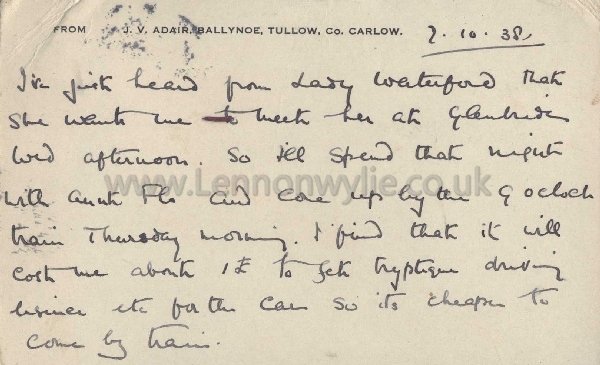 FROM J. V. ADAIR, BALLYNOE, TULLOW, Co. CARLOW. 2.10.38
I've just heard from Lady Waterford that
she wants me to meet her at Glenbride
Wed afternoon. So Ill spend that night
with Aunt Flo and come up by the 9 oclock
train Thursday morning. I find that it will
cost me about 1£ to get tryptique driving
lisence etc for the car so its cheaper to
come by train.
www.Lennonwylie.co.uk